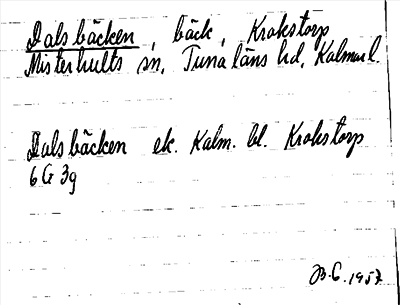 Dalsbäcken, bäck, Krokstorp
Misterhults sn, Tunaläns hd, Kalmar l.
Dalsbäcken ek. Kalm. bl. Krokstorp
6G 3g
B.C. 1957